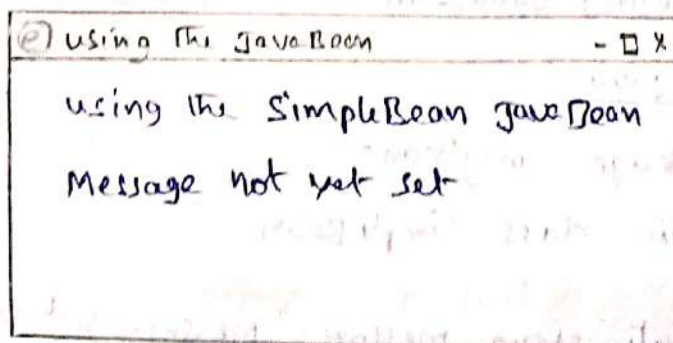 e using the JavaBean - □ X
using the SimpleBean JavaBean
Message not yet set